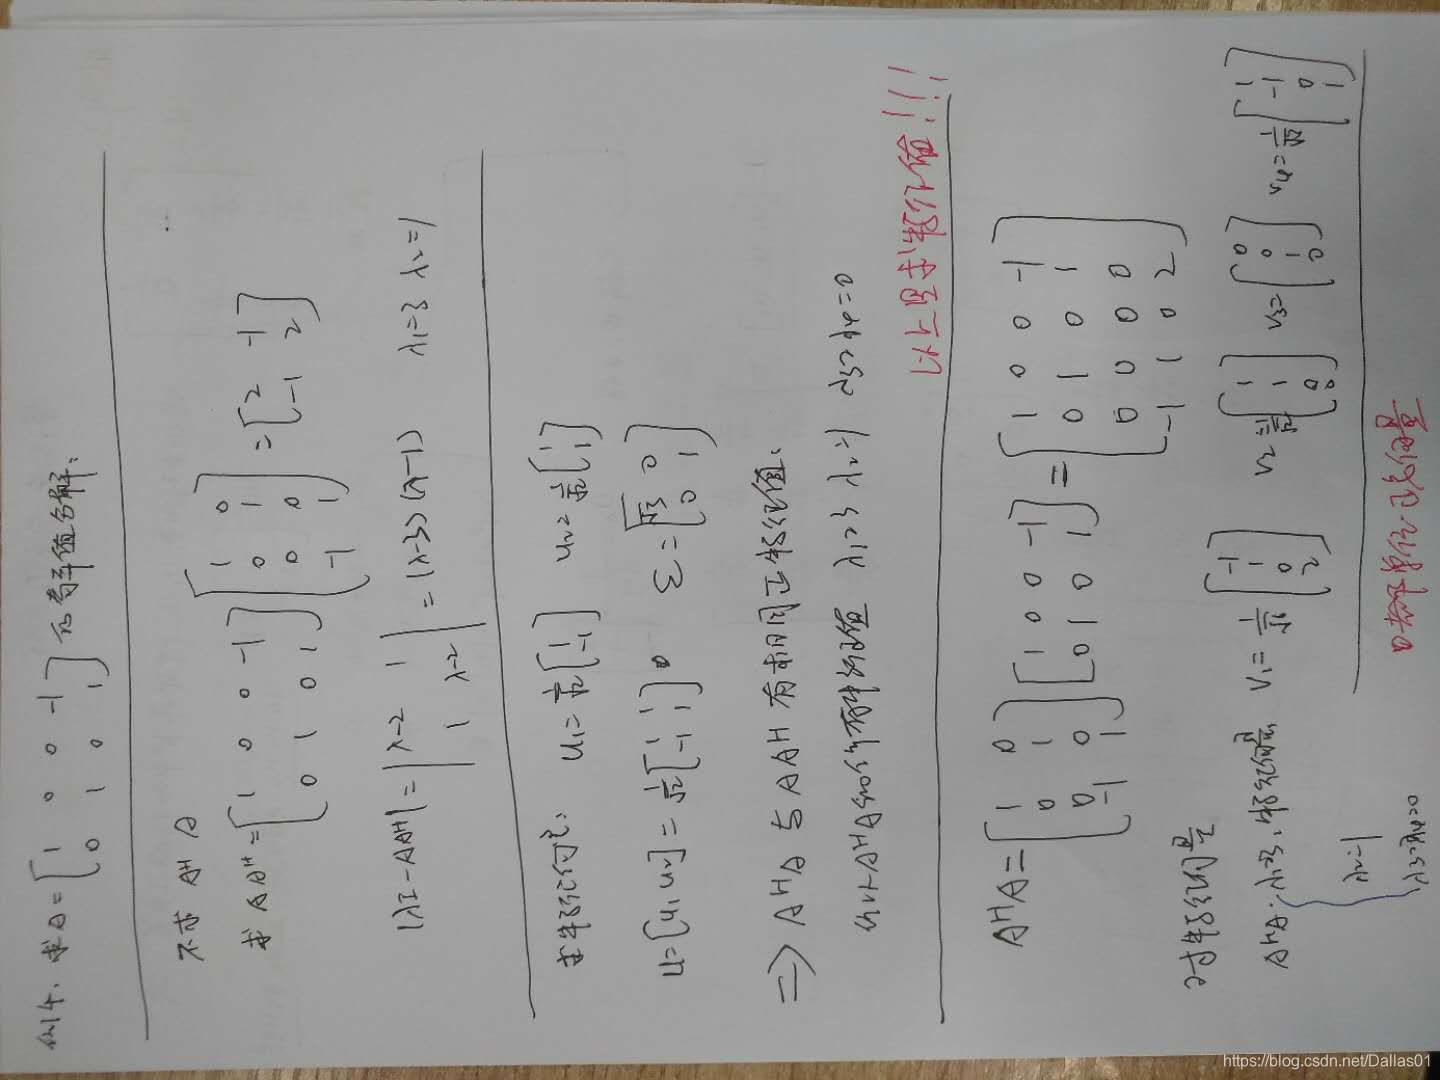 例4、求A=[1 0 0 -1; 0 1 0 1] 的奇异值分解:
不求 AᴴA
求 AAᴴ=[1 0 0 -1; 0 1 0 1][1 0; 0 1; 0 0; -1 1] = [2 -1; -1 2]
|λI-AAᴴ| = |λ-2 1; 1 λ-2| = (λ-3)(λ-1) λ1=3 λ2=1
求特征向量: u1=1/√2[1; -1] u2=1/√2[1; 1]
U=[u1 u2] = 1/√2[1 1; -1 1]。 Σ=[√3 0; 0 1]
=> AᴴA 与 AAᴴ 有相同正特征值.
所以AᴴA的所有特征值 λ1=3 λ2=1 λ3=λ4=0
AᴴA=[1 0; 0 1; 0 0; -1 1][1 0 0 -1; 0 1 0 1] = [1 0 0 -1; 0 1 0 1; 0 0 0 0; -1 1 0 2]
对特征向量
AᴴA: λ1=3, 特征向量 v1=1/√6[-1; 1; 0; 2] v2=1/√2[1; 1; 0; 0] v3=[0; 0; 1; 0] v4=1/√3[1; -1; 0; 1]
λ2=1
λ3=λ4=0
https://blog.csdn.net/Dallas01